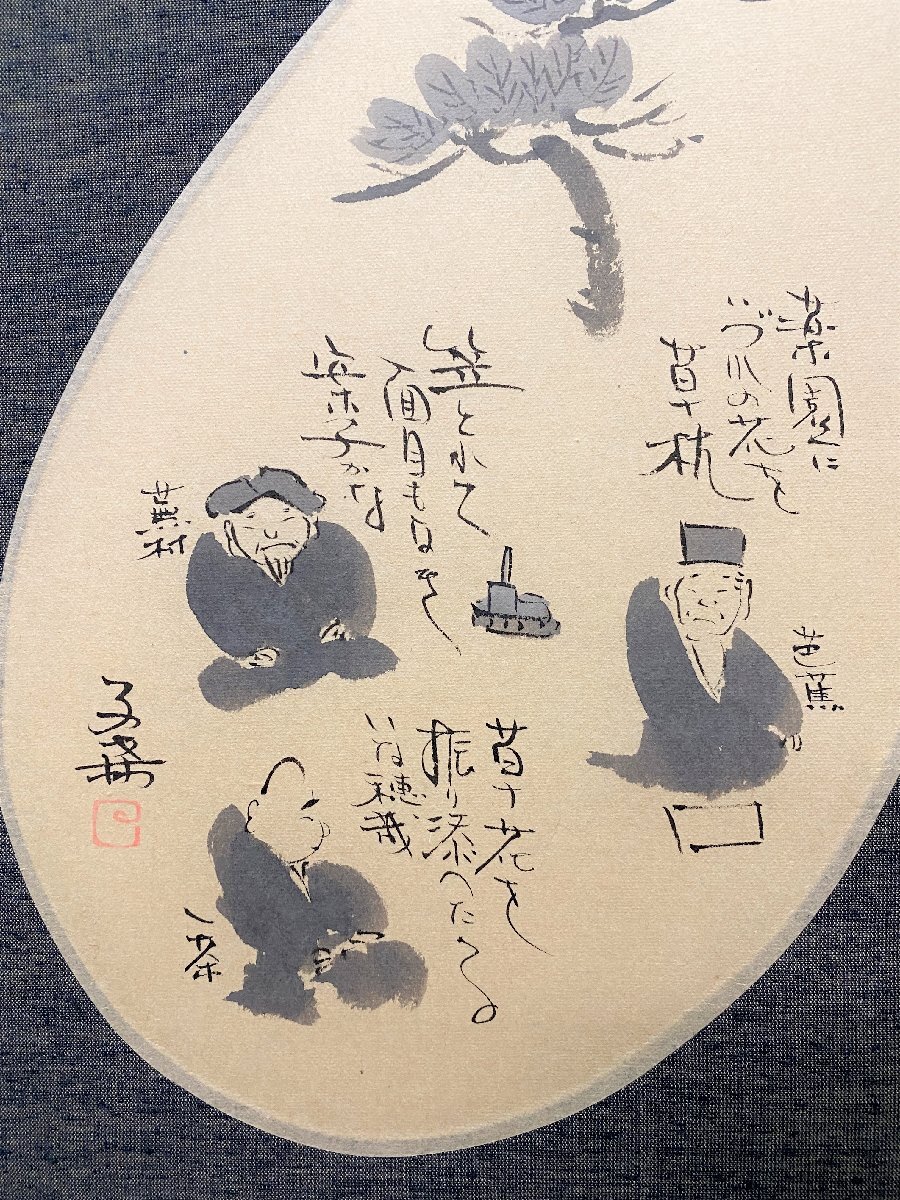 薬園に
いづれの花を
草枕
芭蕉
笠とれて
面目もなき
案子かな
蕪村
草花を
振り添へたる
いな穂哉
一茶